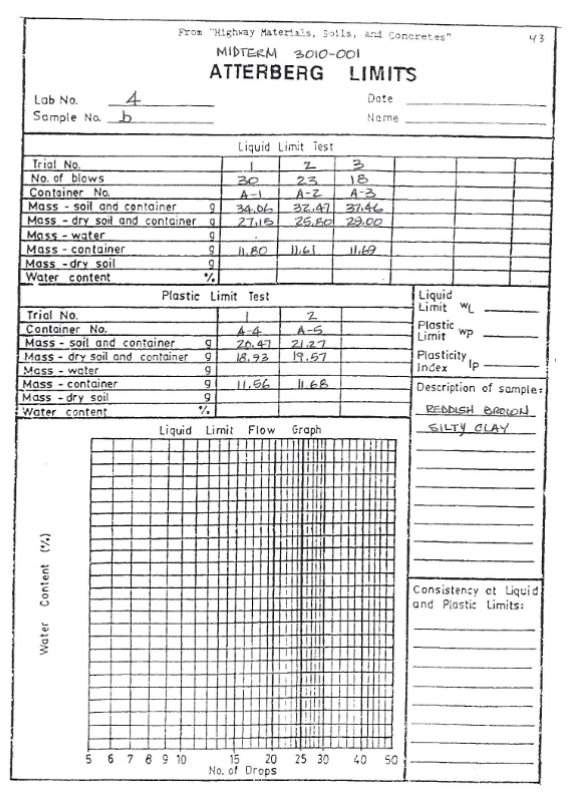 From "Highway Materials, Soils, and Concretes" 43
MIDTERM 3010-001
ATTERBERG LIMITS
Lab No. 4 Date
Sample No. b Name
Liquid Limit Test
Trial No. 1 2 3
No. of blows 30 23 18
Container No. A-1 A-2 A-3
Mass - soil and container g 34.06 32.47 37.46
Mass - dry soil and container g 27.15 25.80 29.00
Mass - water g
Mass - container g 11.80 11.61 11.69
Mass - dry soil g
Water content %
Plastic Limit Test
Trial No. 1 2
Container No. A-4 A-5
Mass - soil and container g 20.47 21.27
Mass - dry soil and container g 18.93 19.57
Mass - water g
Mass - container g 11.56 11.68
Mass - dry soil g
Water content %
Liquid
Limit wL
Plastic
Limit wP
Plasticity
Index IP
Description of sample:
REDDISH BROWN
SILTY CLAY
Liquid Limit Flow Graph
Water Content (%)
5 6 7 8 9 10 15 20 25 30 40 50
No. of Drops
Consistency at Liquid
and Plastic Limits: